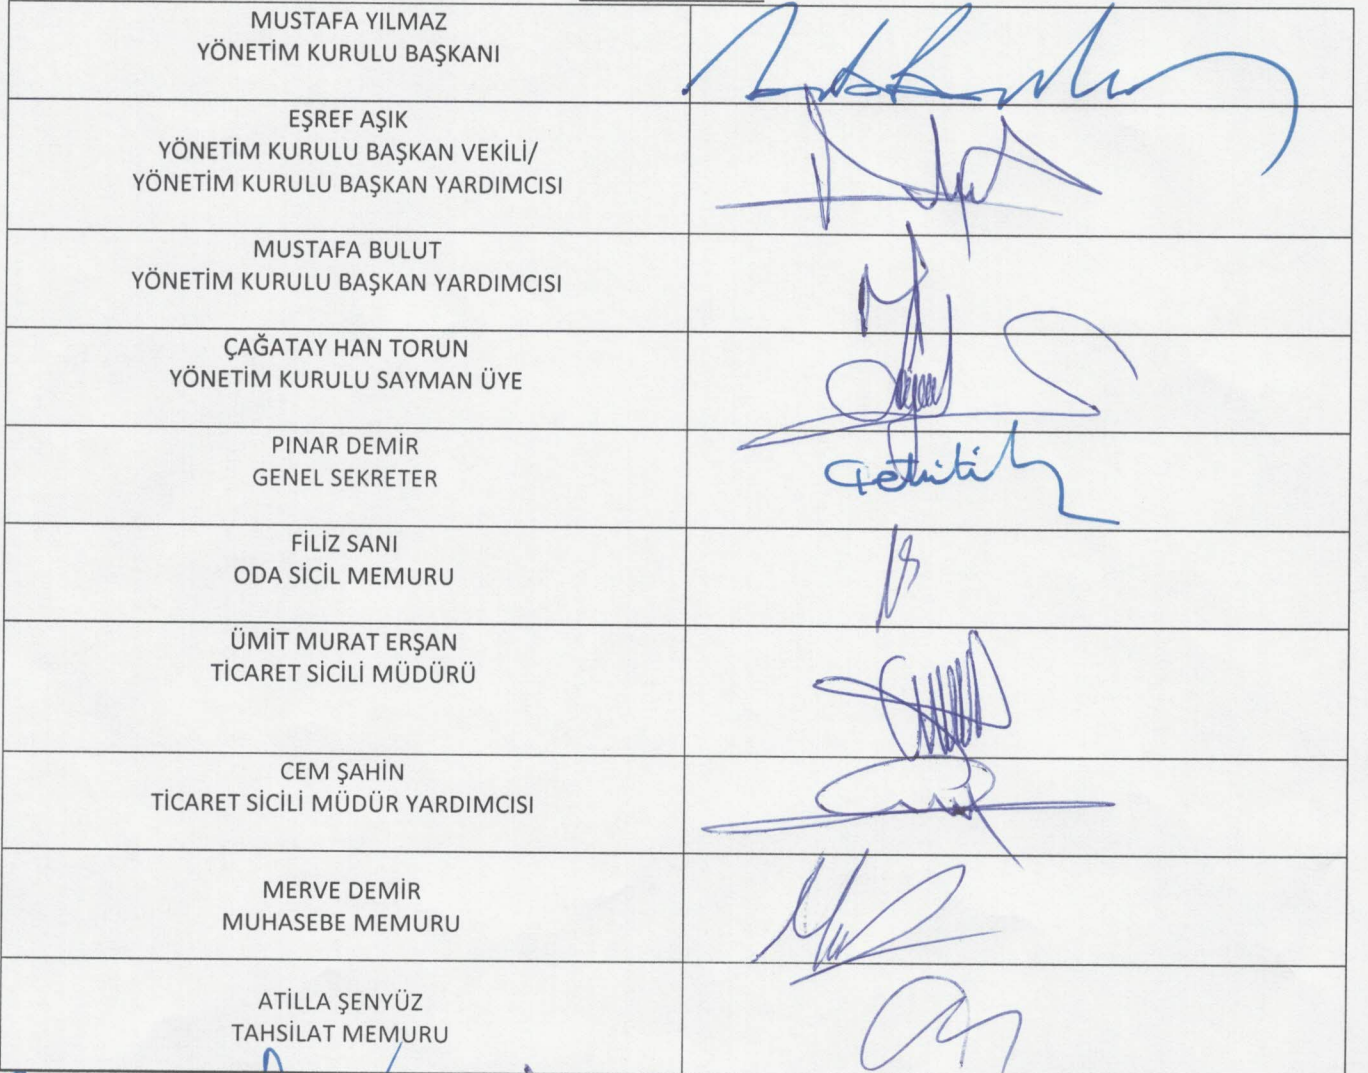 MUSTAFA YILMAZ
YÖNETİM KURULU BAŞKANI
EŞREF AŞIK
YÖNETİM KURULU BAŞKAN VEKİLİ/
YÖNETİM KURULU BAŞKAN YARDIMCISI
MUSTAFA BULUT
YÖNETİM KURULU BAŞKAN YARDIMCISI
ÇAĞATAY HAN TORUN
YÖNETİM KURULU SAYMAN ÜYE
PINAR DEMİR
GENEL SEKRETER
FİLİZ SANI
ODA SİCİL MEMURU
ÜMİT MURAT ERŞAN
TİCARET SİCİLİ MÜDÜRÜ
CEM ŞAHİN
TİCARET SİCİLİ MÜDÜR YARDIMCISI
MERVE DEMİR
MUHASEBE MEMURU
ATİLLA ŞENYÜZ
TAHSİLAT MEMURU